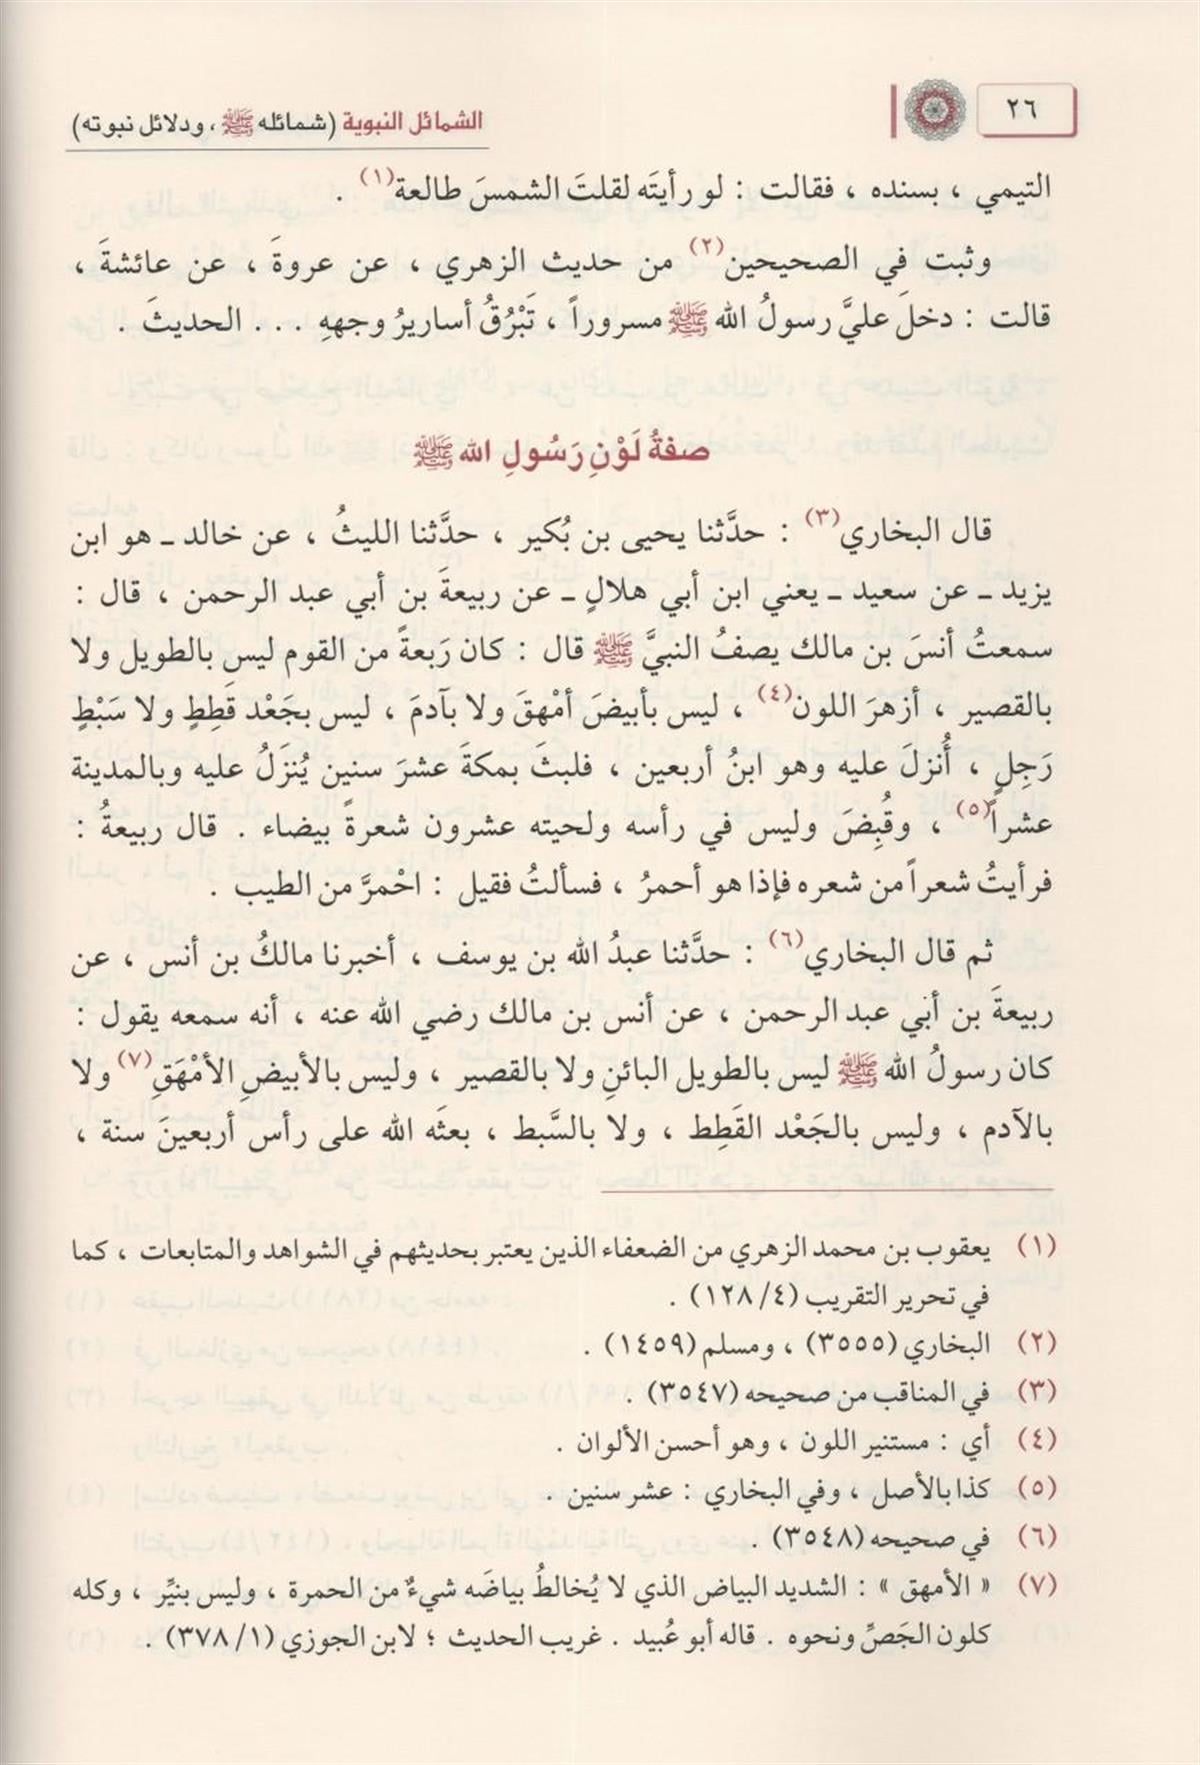 ٢٦
الشمائل النبوية (شمائله ﷺ ، ودلائل نبوته)
التيمي ، بسنده ، فقالت : لو رأيتَه لقلتَ الشمسَ طالعة(١) .
وثبت في الصحيحين(٢) من حديث الزهري ، عن عروةَ ، عن عائشةَ ،
قالت : دخلَ عليَّ رسولُ الله ﷺ مسروراً ، تَبْرُقُ أساريرُ وجههِ . . . الحديثَ .
صفةُ لَوْنِ رَسُولِ الله ﷺ
قال البخاري(٣) : حدَّثنا يحيى بن بُكير ، حدَّثنا الليثُ ، عن خالد ـ هو ابن
يزيد ـ عن سعيد ـ يعني ابن أبي هلالٍ ـ عن ربيعةَ بن أبي عبد الرحمن ، قال :
سمعتُ أنسَ بن مالك يصفُ النبيَّ ﷺ قال : كان رَبعةً من القوم ليس بالطويل ولا
بالقصير ، أزهرَ اللون(٤) ، ليس بأبيضَ أمْهقَ ولا بآدمَ ، ليس بجَعْد قَطِطٍ ولا سَبْطٍ
رَجِلٍ ، أُنزلَ عليه وهو ابنُ أربعين ، فلبثَ بمكةَ عشرَ سنين يُنزَلُ عليه وبالمدينة
عشراً(٥) ، وقُبِضَ وليس في رأسه ولحيته عشرون شعرةً بيضاء . قال ربيعةُ :
فرأيتُ شعراً من شعره فإذا هو أحمرُ ، فسألتُ فقيل : احْمرَّ من الطيب .
ثم قال البخاري(٦) : حدَّثنا عبدُ الله بن يوسف ، أخبرنا مالكُ بن أنس ، عن
ربيعةَ بن أبي عبد الرحمن ، عن أنس بن مالك رضي الله عنه ، أنه سمعه يقول :
كان رسولُ الله ﷺ ليس بالطويل البائنِ ولا بالقصير ، وليس بالأبيضِ الأمْهَقِ(٧) ولا
بالآدم ، وليس بالجَعْد القَطِط ، ولا بالسَّبط ، بعثَه الله على رأس أربعينَ سنة ،
(١) يعقوب بن محمد الزهري من الضعفاء الذين يعتبر بحديثهم في الشواهد والمتابعات ، كما
في تحرير التقريب (٤/ ١٢٨) .
(٢) البخاري (٣٥٥٥) ، ومسلم (١٤٥٩) .
(٣) في المناقب من صحيحه (٣٥٤٧) .
(٤) أي : مستنير اللون ، وهو أحسن الألوان .
(٥) كذا بالأصل ، وفي البخاري : عشر سنين .
(٦) في صحيحه (٣٥٤٨) .
(٧) « الأمهق » : الشديد البياض الذي لا يُخالطُ بياضَه شيءٌ من الحمرة ، وليس بنيِّر ، وكله
كلون الجَصِّ ونحوه . قاله أبو عُبيد . غريب الحديث ؛ لابن الجوزي (١/ ٣٧٨) .